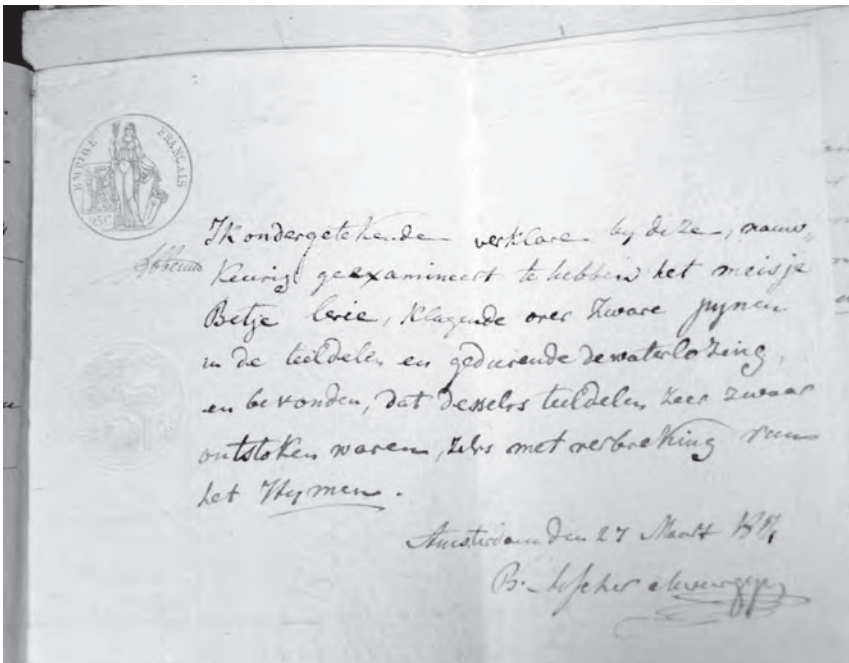 EMPIRE FRANÇAIS
Ik ondergetekende verklare by deze, nauw„
keurig geexamineert te hebben het meisje
Betje Levie, klagende over zware pynen
in de teeldelen en gedurende de waterlozing,
en bevonden, dat deszelvs teeldelen zeer zwaar
ontstoken waren, zelvs met verbreking van
het Hymen.
Amsterdam den 27 Maart
B.